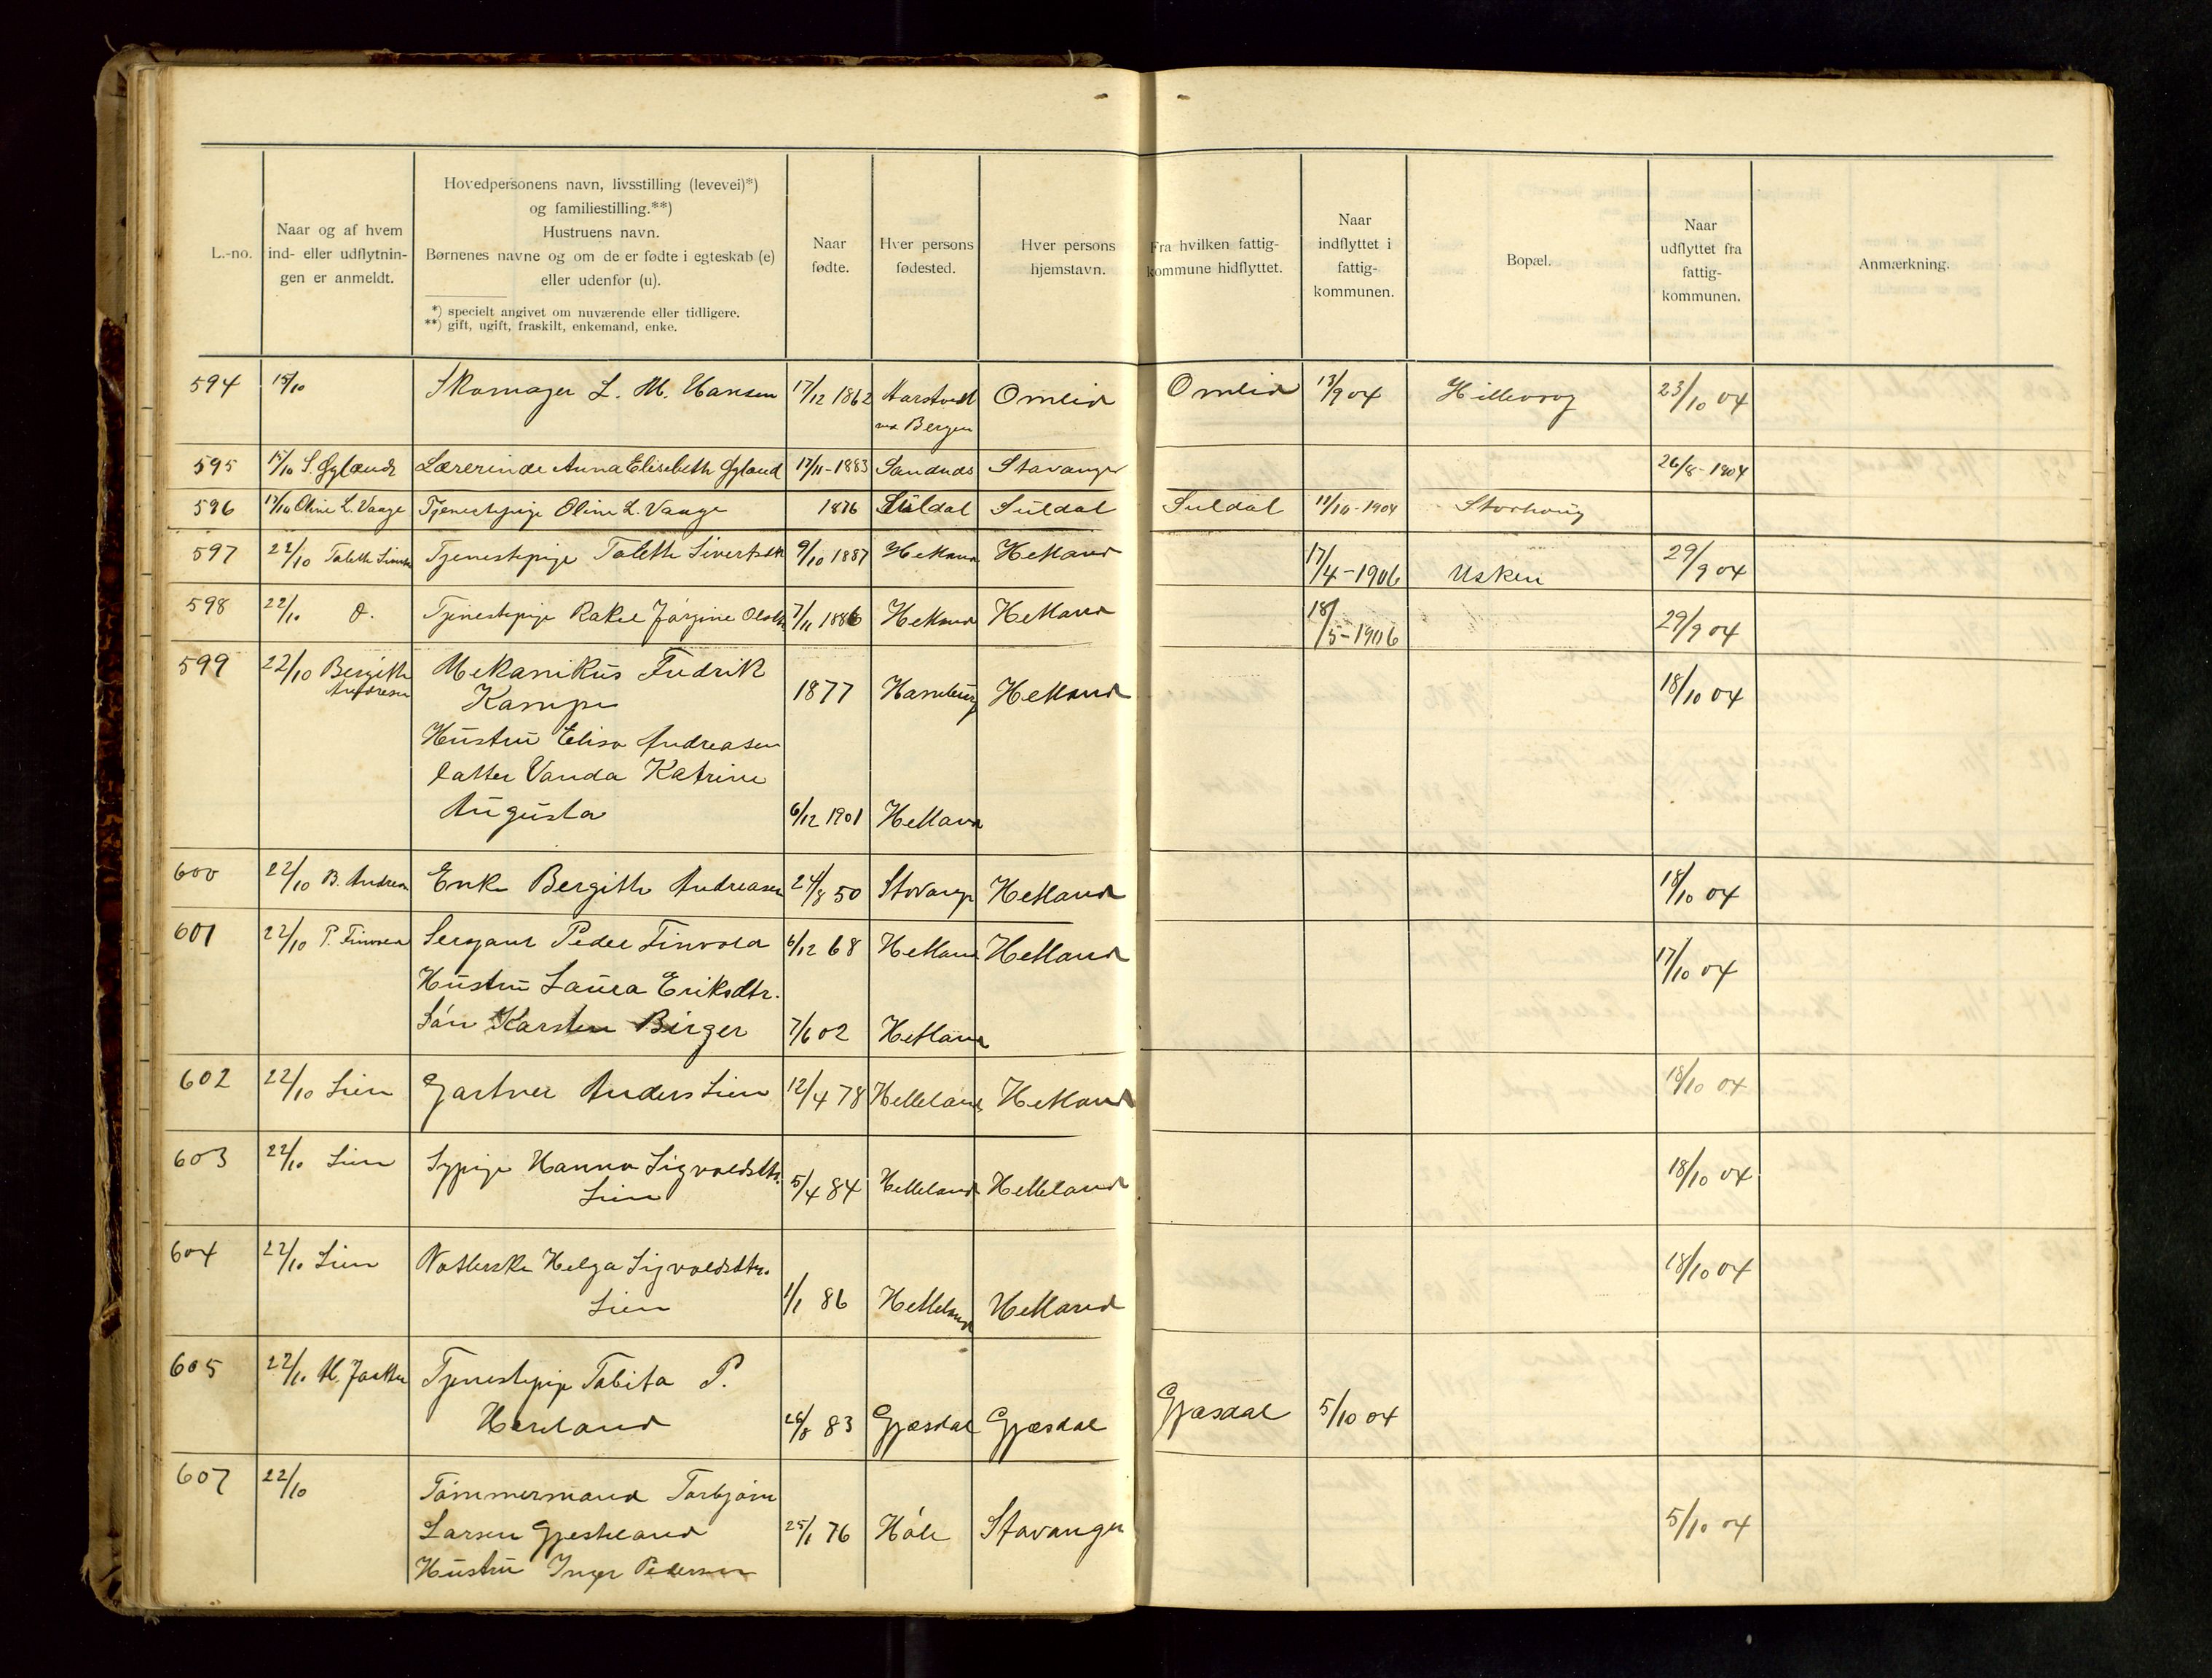 L.-no.
Naar og af hvem
ind- eller udflytnin-
gen er anmeldt.
Hovedpersonens navn, livsstilling (levevei)*)
og familiestilling.**)
Hustruens navn.
Børnenes navne og om de er fødte i egteskab (e)
eller udenfor (u).
*) specielt angivet om nuværende eller tidligere.
**) gift, ugift, fraskilt, enkemand, enke.
Naar
fødte.
Hver persons
fødested.
Hver persons
hjemstavn.
Fra hvilken fattig-
kommune hidflyttet.
Naar
indflyttet i
fattig-
kommunen.
Bopæl.
Naar
udflyttet fra
fattig-
kommunen.
Anmærkning.
594 15/10 Skomager L. M. Hansen 17/12 1862 Aarstved Omlid Omlid 13/9 04 Hillevog 23/10 04
ved Bergen
595 15/10 S. Gyland Lærerinde Anna Elisebeth Gyland 17/11-1883 Sandnes Stavanger 26/8-1904
596 17/10 Oline L. Vaage Tjenestepige Oline L. Vaage 1876 Suldal Suldal Suldal 11/10-1904 Storhoug
597 22/10 Taleth Tjenestepige Taleth Sivertsdtr 9/10 1887 Hetland Hetland 17/4-1906 Usken 29/9 04
598 22/10 d. Tjenestepige Rakel Jørgine 7/11 1886 Hetland Hetland 18/5-1906 29/9 04
599 22/10 Bergithe Mekanikus Fredrik
Andreasen Kampe 1877 Hamburg Hetland 18/10 04
Hustru Elisa Andreasen
Datter Vanda Katrine
Augusta 6/12 1901 Hetland
600 22/10 B. Andreasen Enke Bergithe Andreasen 24/8 50 Stavanger Hetland 18/10 04
601 22/10 P. Tinvold Sergant Peder Tinvold 6/12 68 Hetland Hetland 17/10 04
Hustru Laura Eriksdtr.
Søn Karsten Birger 7/6 02 Hetland
602 22/10 Lien Gartner Anders Lien 12/4 78 Helleland Hetland 18/10 04
603 22/10 Lien Sypige Hanna Sigvaldsdtr.
Lien 5/4 84 Helleland Helleland 18/10 04
604 22/10 Lien Helga Sigvaldsdtr.
Lien 1/1 86 Helleland Hetland 18/10 04
605 22/10 M. Tjenestepige Tabita P.
26/8 83 Gjæsdal Gjæsdal Gjæsdal 5/10 04
607 22/10 Tømmermand Torbjørn
Larsen Gjesteland 25/1 76 Høle Stavanger 5/10 04
Hustru Inger Pedersen